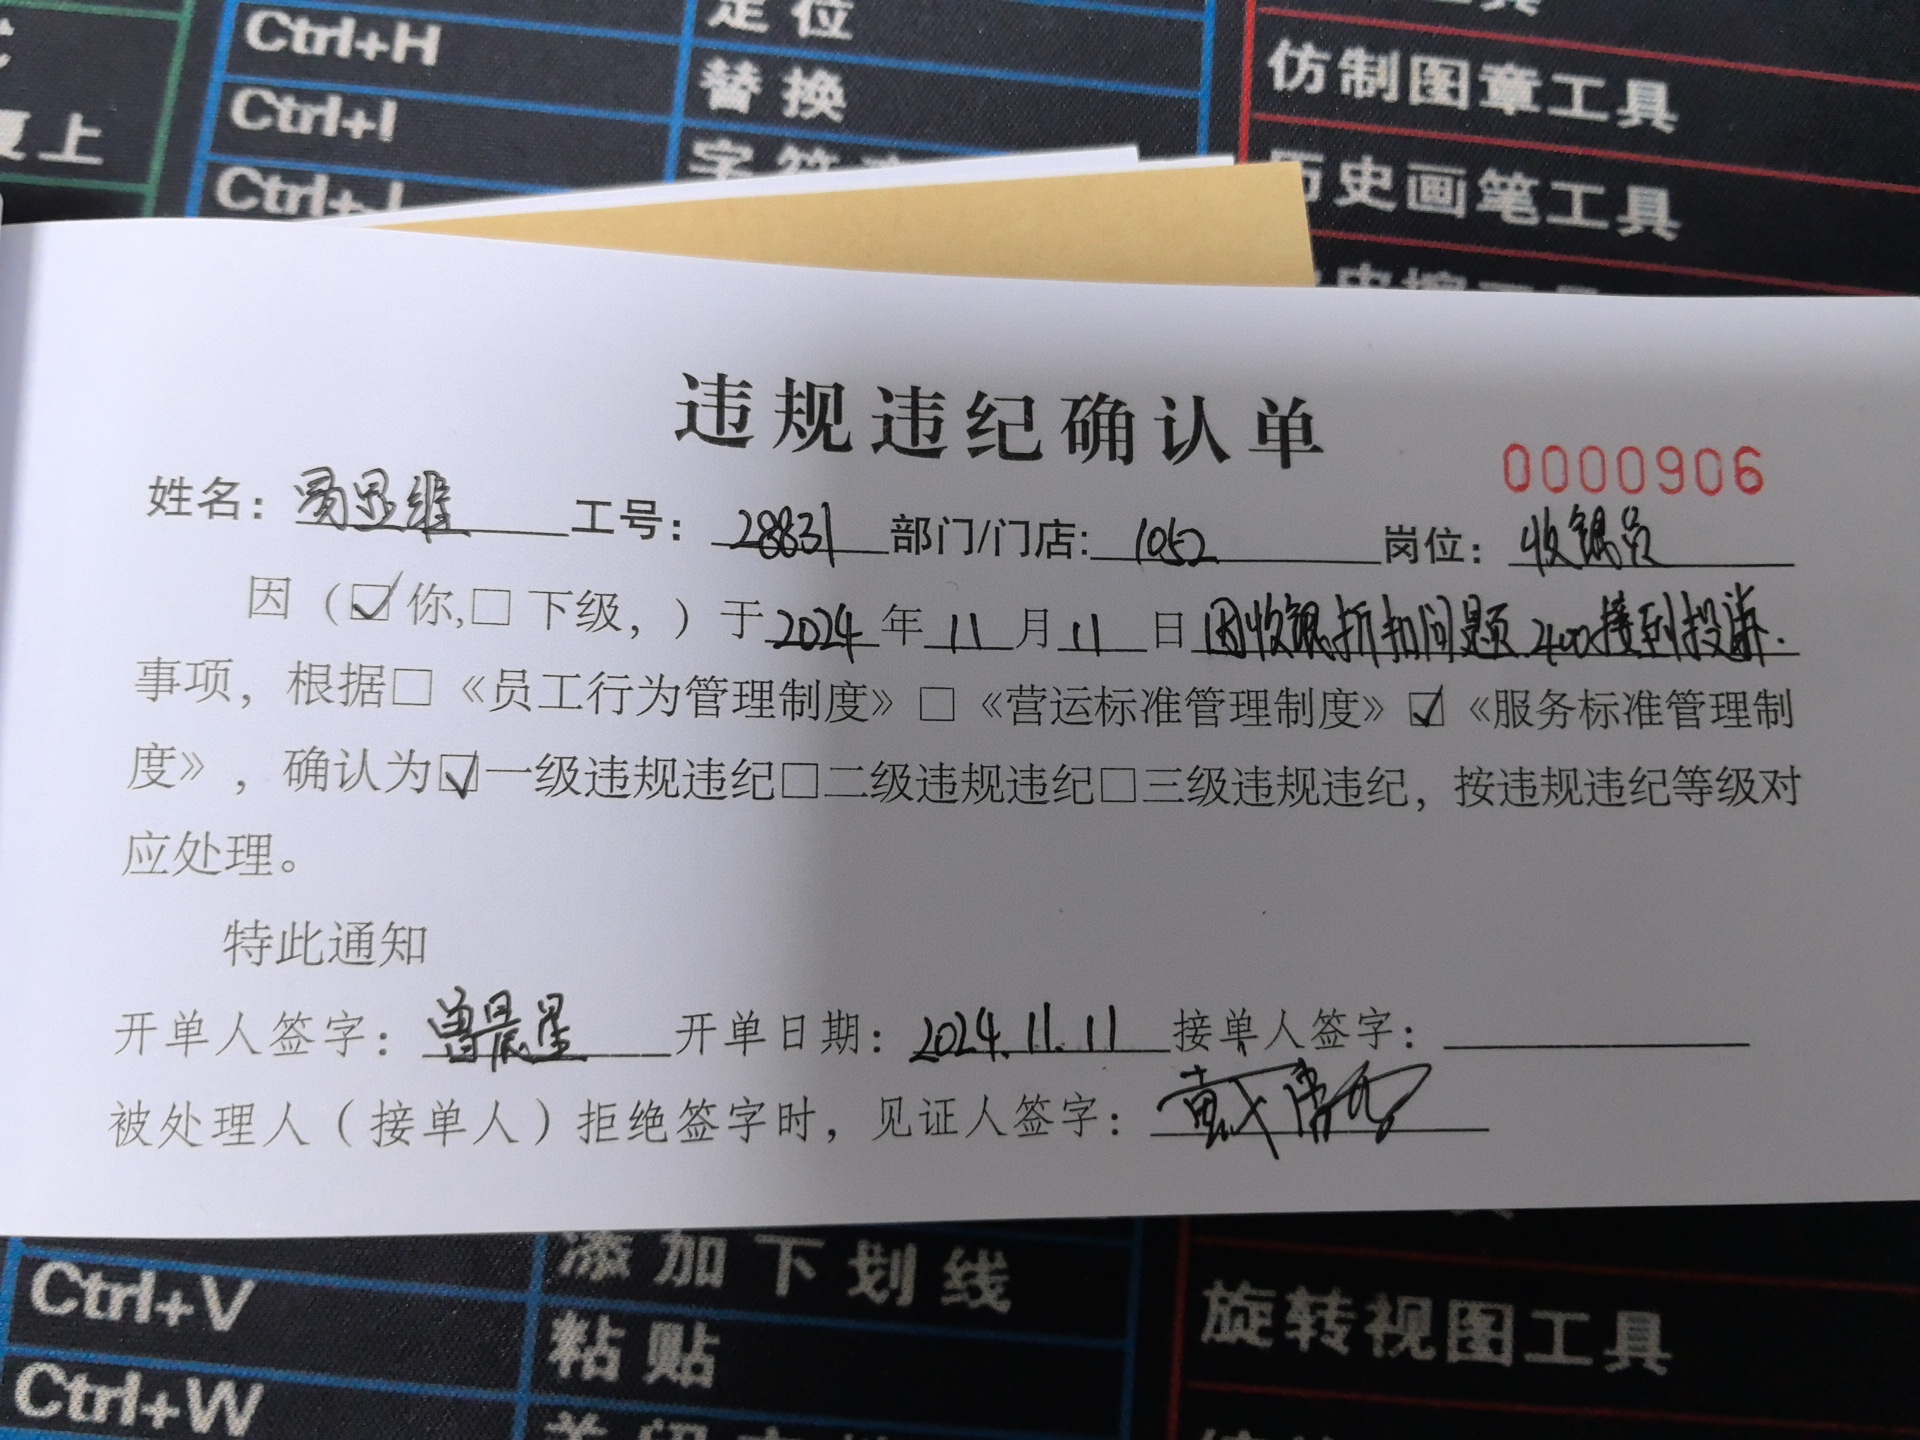 Ctrl+H
定位
Ctrl+I
替换
仿制图章工具
复上
历史画笔工具
违规违纪确认单
0000906
姓名： 工号：28831 部门/门店：1052 岗位：收银员
因（☑你,□下级，）于2024年11月11日因收银折扣问题2400接到投诉.
事项，根据□《员工行为管理制度》□《营运标准管理制度》☑《服务标准管理制
度》，确认为☑一级违规违纪□二级违规违纪□三级违规违纪，按违规违纪等级对
应处理。
特此通知
开单人签字：曾晨星 开单日期：2024.11.11 接单人签字：
被处理人（接单人）拒绝签字时，见证人签字：
添加下划线
Ctrl+V
粘贴
旋转视图工具
Ctrl+W